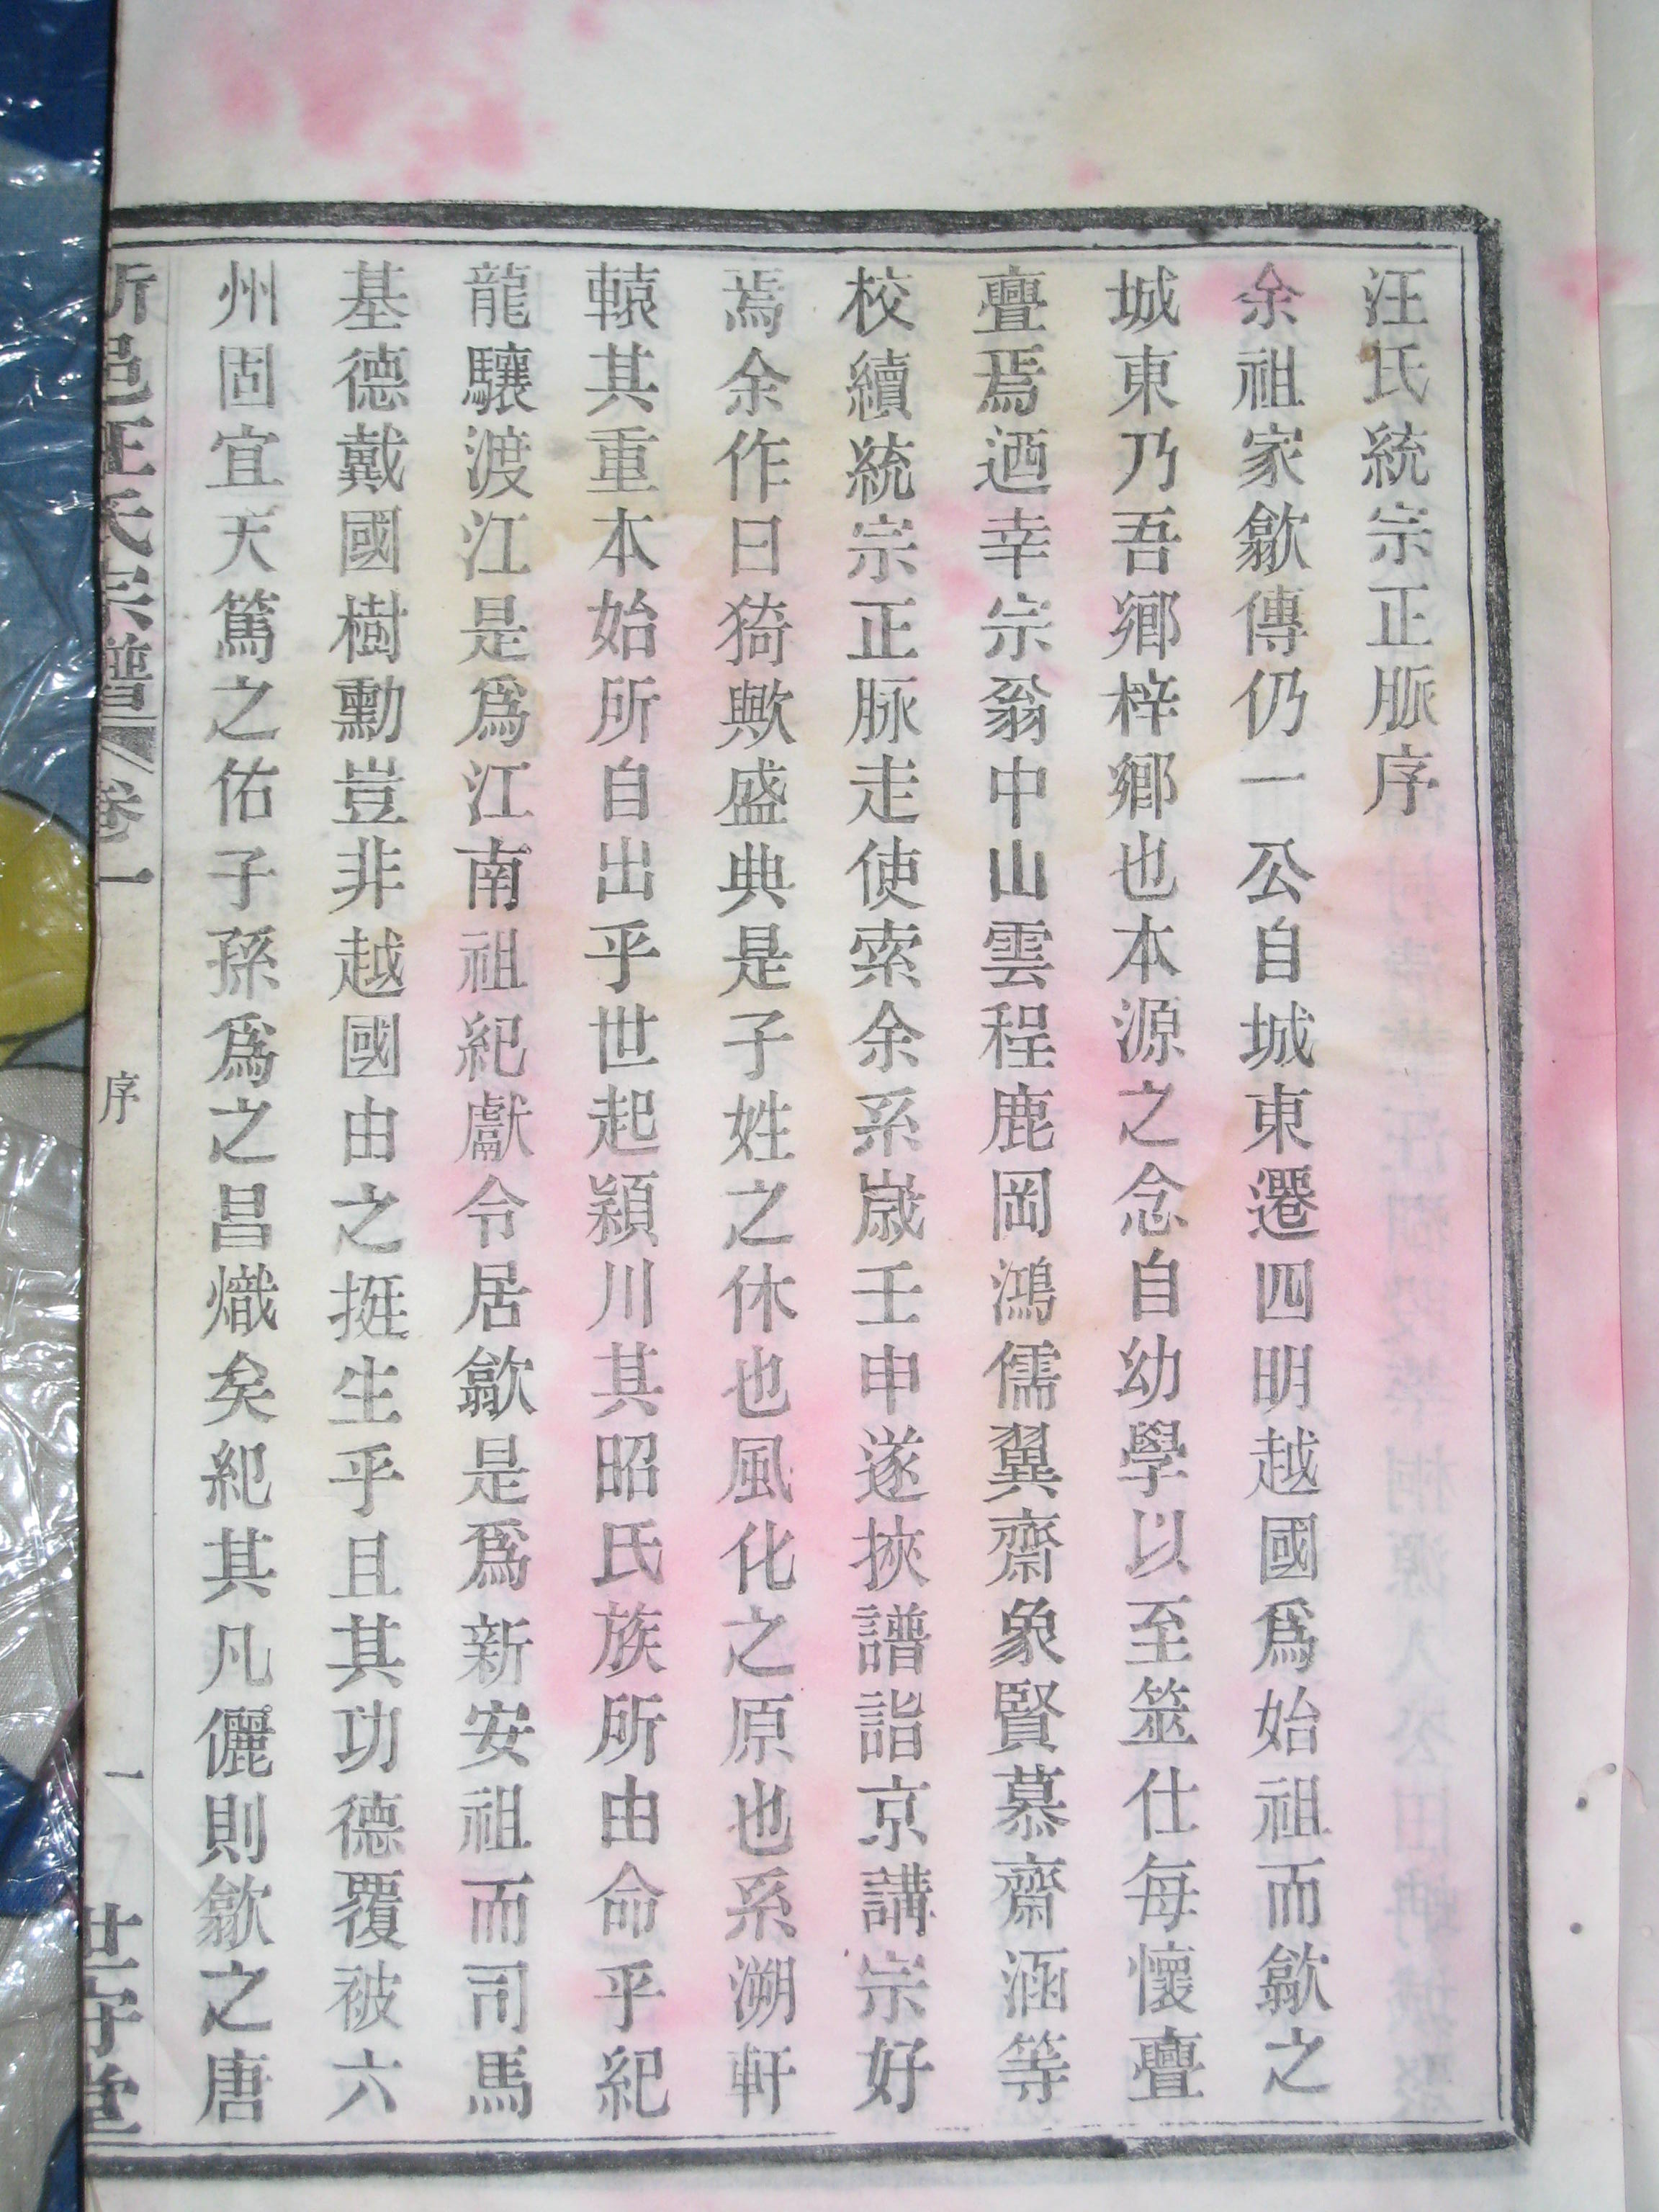 汪氏統宗正脈序
余祖家歙傳仍一公自城東遷四明越國爲始祖而歙之
城東乃吾鄉梓鄉也本源之念自幼學以至筮仕每懷亹
亹焉迺幸宗翁中山雲程鹿岡鴻儒翼齋象賢慕齋涵等
校續統宗正脉走使索余系嵗壬申遂挾譜詣京講宗好
焉余作曰猗歟盛典是子姓之休也風化之原也系溯軒
轅其重本始所自出乎世起潁川其昭氏族所由命乎紀
龍驤渡江是爲江南祖紀獻令居歙是爲新安祖而司馬
基德戴國樹勳豈非越國由之挺生乎且其功德覆被六
州固宜天篤之佑子孫爲之昌熾矣紀其凡儷則歙之唐
邑汪氏宗譜 卷一 序 一 世守堂